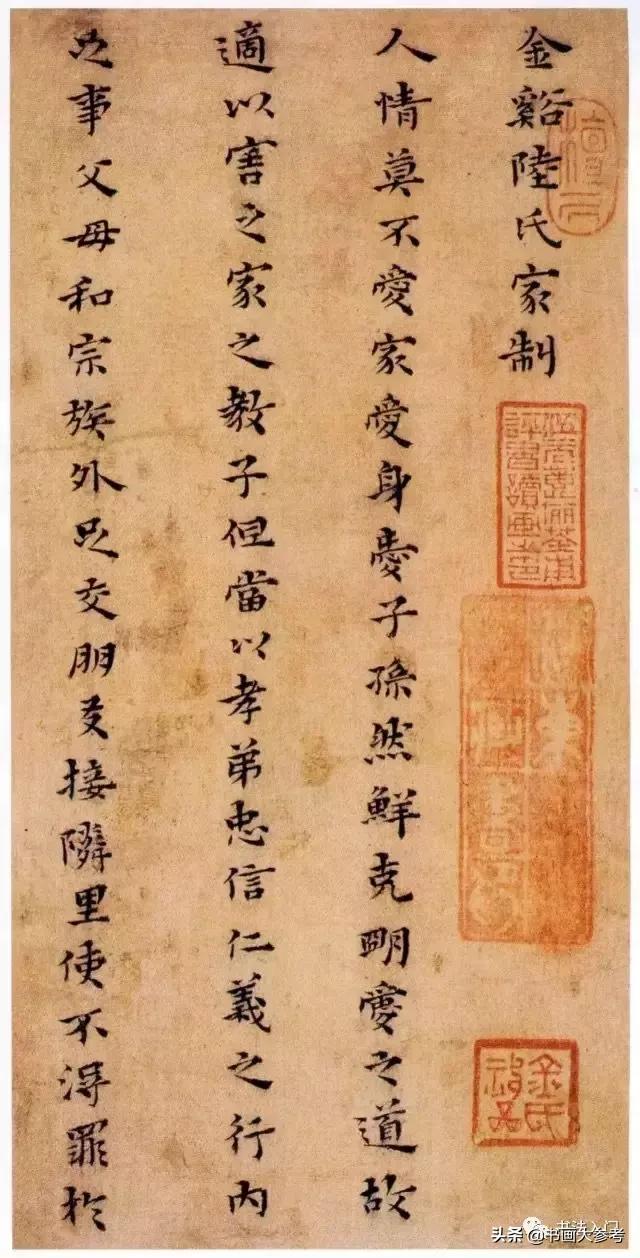 金谿陸氏家制
人情莫不愛家愛身愛子孫然鮮克明愛之道故
適以害之家之教子但當以孝弟忠信仁義之行內
足事父母和宗族外足交朋友接隣里使不得罪於
儷荃甫
評書讀畫之印
金氏
书法入门
头条 @书画大参考